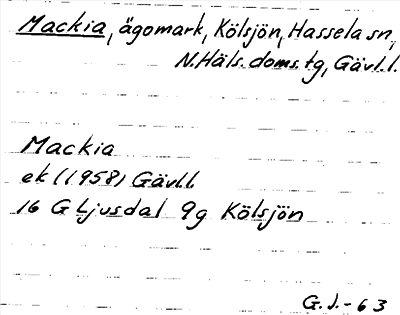 Mackia, ägomark, Kölsjön, Hassela sn,
N. Häls. doms. tg, Gävl. l.
Mackia
ek (1958) Gävl.l.
16 G Ljusdal 9g Kölsjön
G. J. - 63